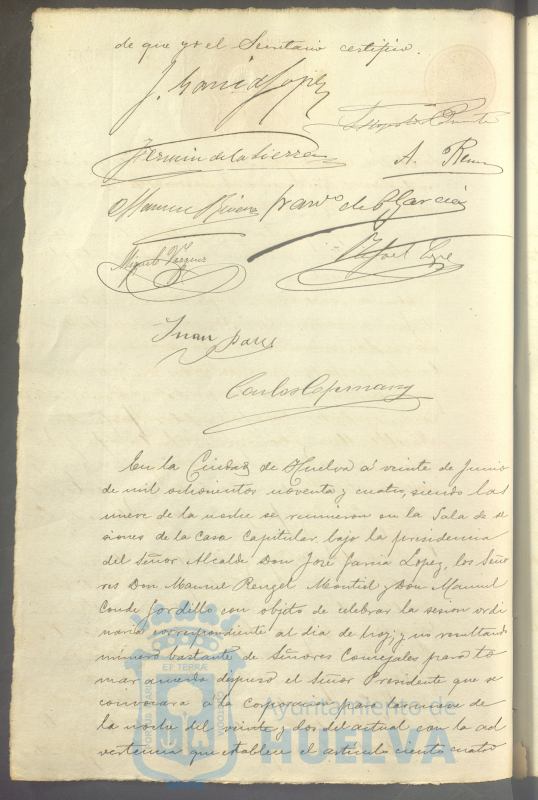 de que yo el Secretario certifico.
J. Garcia Lopez
A. Ren
Fermin de la Sierra
Manuel Rivera
de P. Garcia
Miguel Vazquez
Rafael Lope
Juan
Carlos
En la Ciudad de Huelva á veinte de Junio
de mil ochocientos noventa y cuatro, siendo las
nueve de la noche se reunieron en la Sala de se
siones de la Casa Capitular, bajo la presidencia
del Señor Alcalde Don José Garcia Lopez, los Seño
res Don Manuel Rengel Montiel y Don Manuel
Conde Gordillo con objeto de celebrar la sesion ordi
naria correspondiente al dia de hoy; y no resultando
número bastante de Señores Concejales para to
mar acuerdo dispuso el Señor Presidente que se
convocara á la Corporacion para las nueve de
la noche del veinte y dos del actual con la ad
vertencia que establece el articulo ciento cuatro
PORTUS MARIS
ET TERRÆ
CUSTODIA
Ayuntamiento de
HUELVA